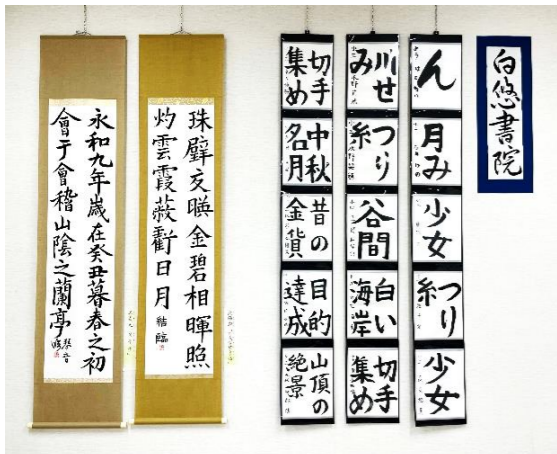 白悠書院
ん
月み
少女
つり
糸
少女
川せ
み
つり
糸
谷間
白い
海岸
切手
集め
切手
集め
中秋
名月
昔の
金貨
目的
達成
山頂の
絶景
珠璧交暎金碧相暉照
灼雲霞蔽虧日月
永和九年歳在癸丑暮春之初
會于會稽山陰之蘭亭